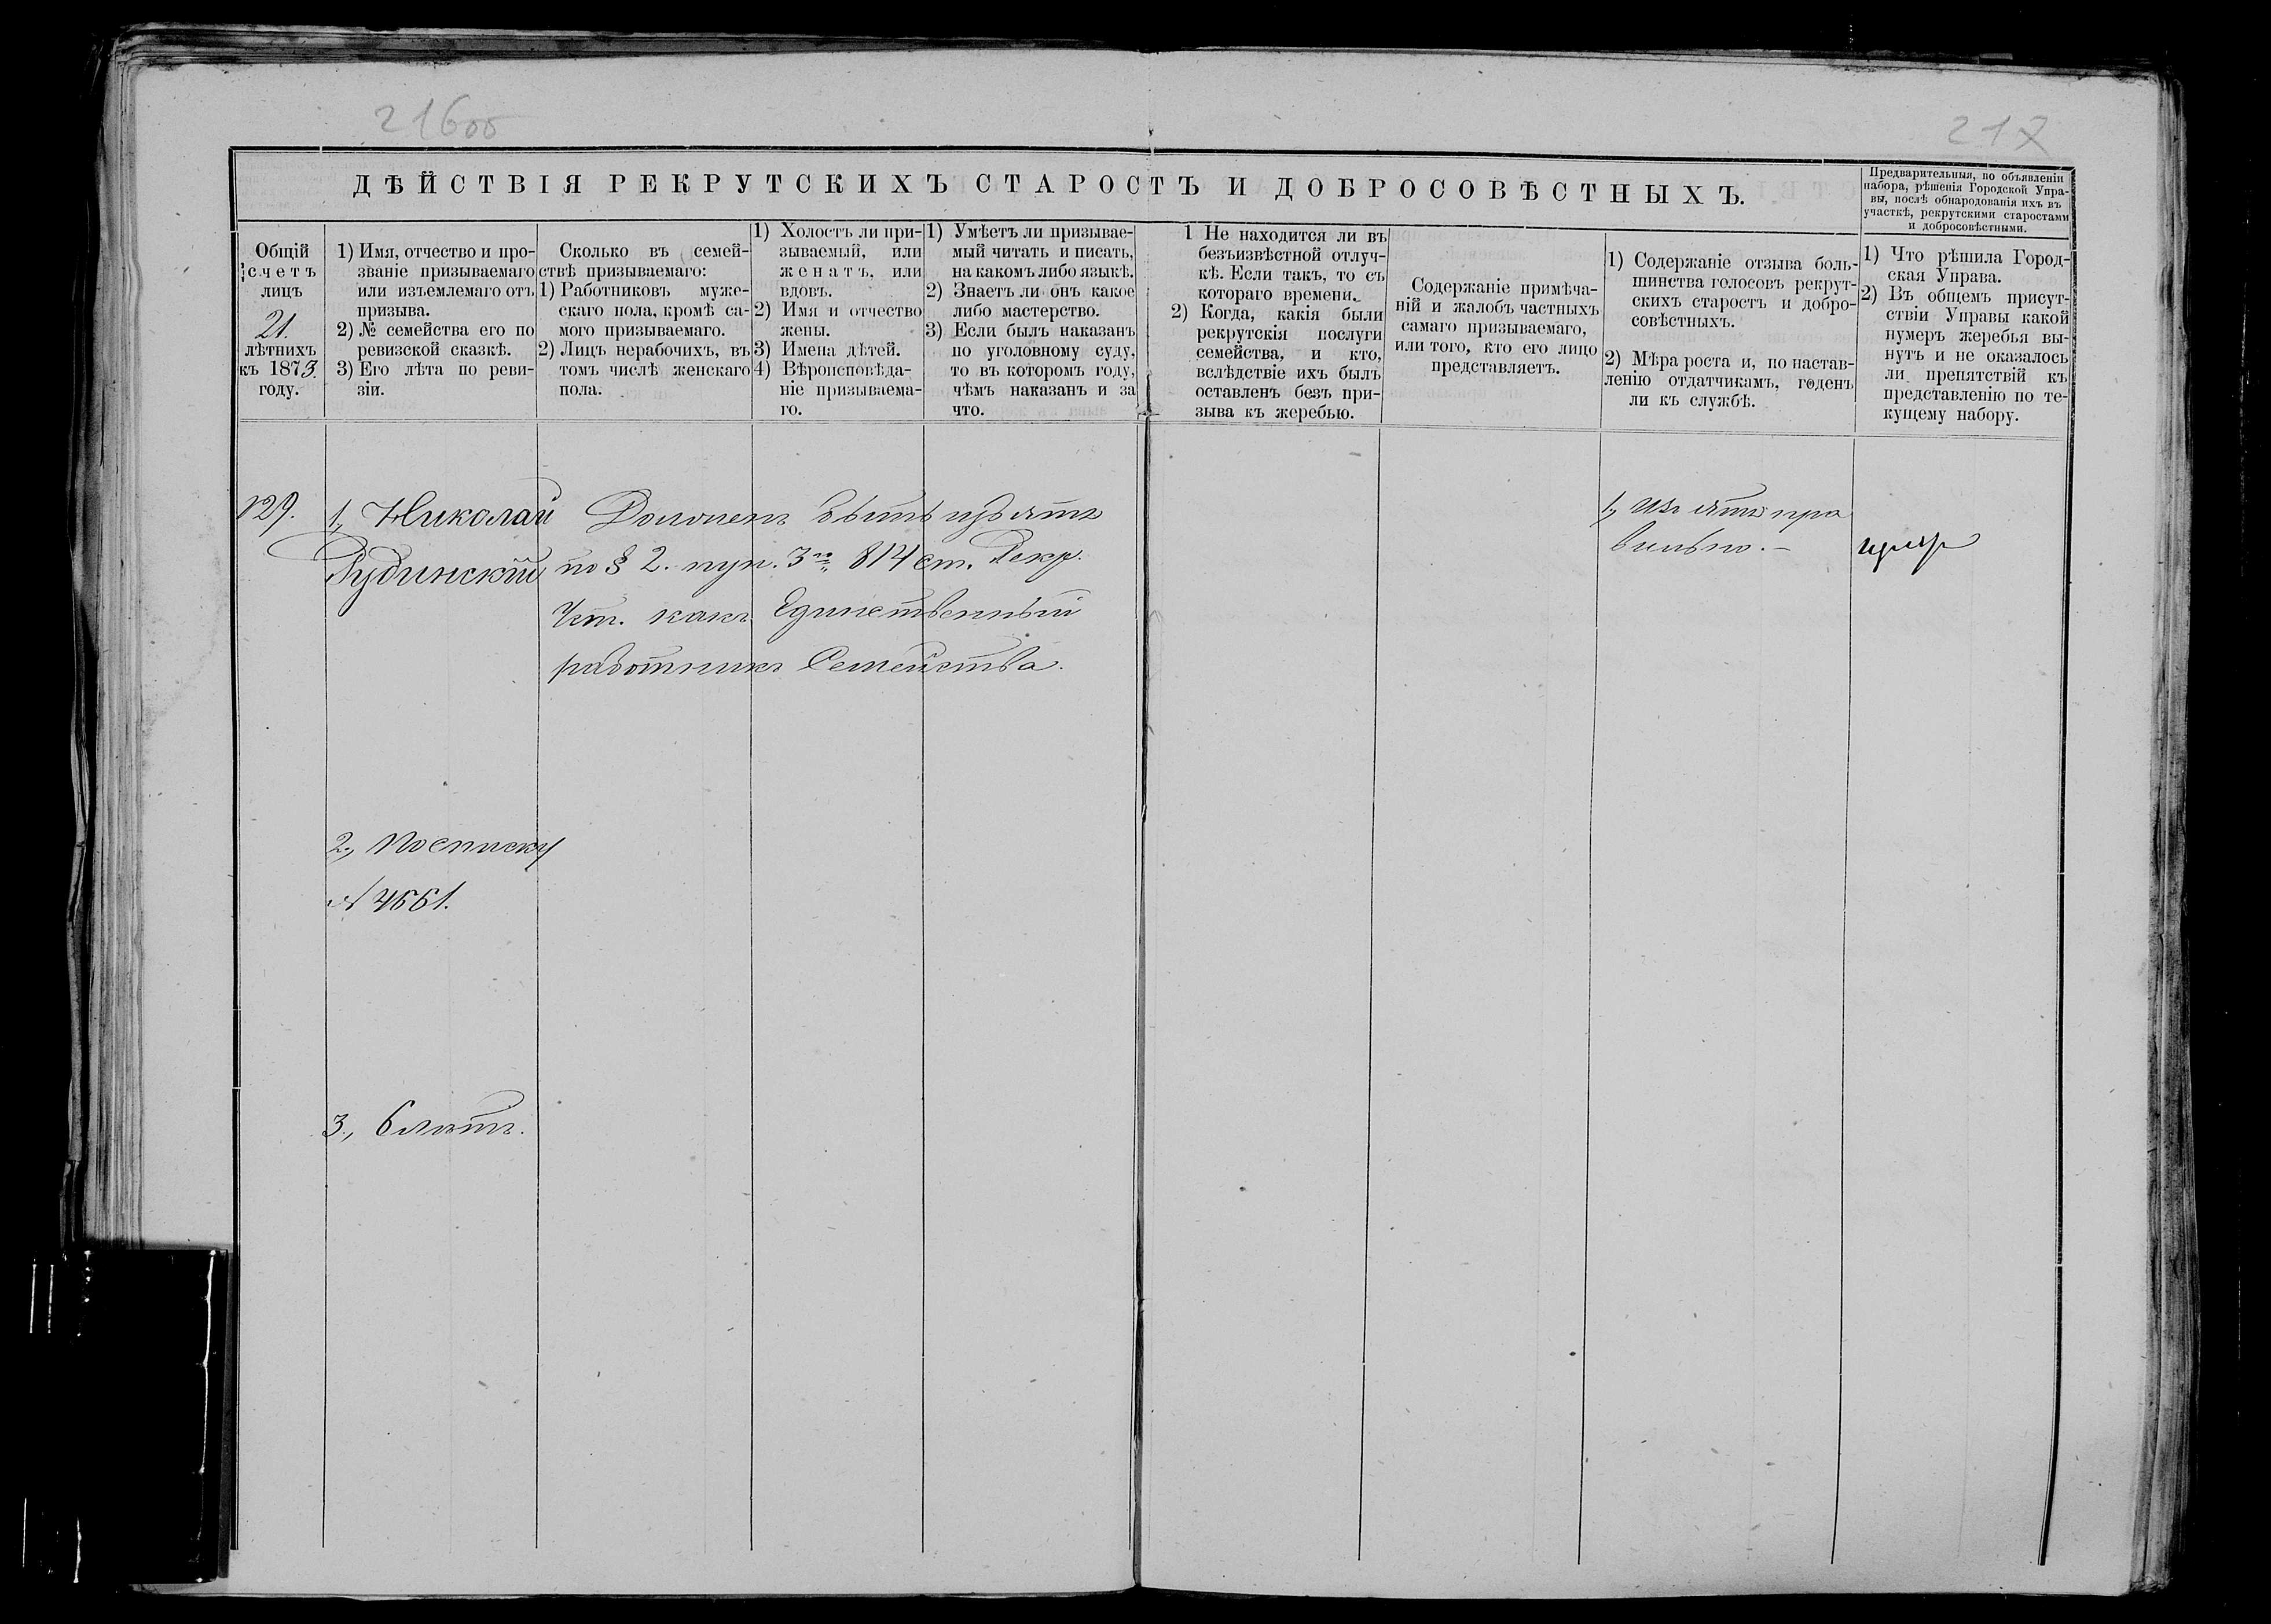 216об
217
ДѢЙСТВІЯ РЕКРУТСКИХЪ СТАРОСТЪ И ДОБРОСОВѢСТНЫХЪ.
Предварительныя, по объявленіи
набора, рѣшенія Городской Упра-
вы, послѣ обнародованія ихъ въ
участкѣ, рекрутскими старостами
и добросовѣстными.
Общій
счетъ
лицъ
21.
лѣтнихъ
къ 1873.
году.
1) Имя, отчество и про-
званіе призываемаго
или изъемлемаго отъ
призыва.
2) № семейства его по
ревизской сказкѣ.
3) Его лѣта по реви-
зіи.
Сколько въ семей-
ствѣ призываемаго:
1) Работниковъ муже-
скаго пола, кромѣ са-
мого призываемаго.
2) Лицъ нерабочихъ, въ
томъ числѣ женскаго
пола.
1) Холостъ ли при-
зываемый, или
женатъ, или
вдовъ.
2) Имя и отчество
жены.
3) Имена дѣтей.
4) Вѣроисповѣда-
ніе призываема-
го.
1) Умѣетъ ли призывае-
мый читать и писать,
на какомъ либо языкѣ.
2) Знаетъ ли онъ какое
либо мастерство.
3) Если былъ наказанъ
по уголовному суду,
то въ которомъ году,
чѣмъ наказанъ и за
что.
1 Не находится ли въ
безъизвѣстной отлуч-
кѣ. Если такъ, то съ
котораго времени.
2) Когда, какія были
рекрутскія послуги
семейства, и кто,
вслѣдствіе ихъ былъ
оставленъ безъ при-
зыва къ жеребью.
Содержаніе примѣча-
ній и жалобъ частныхъ
самаго призываемаго,
или того, кто его лицо
представляетъ.
1) Содержаніе отзыва боль-
шинства голосовъ рекрут-
скихъ старостъ и добро-
совѣстныхъ.
2) Мѣра роста и, по настав-
ленію отдатчикамъ, годенъ
ли къ службѣ.
1) Что рѣшила Город-
ская Управа.
2) Въ общемъ присут-
ствіи Управы какой
нумеръ жеребья вы-
нутъ и не оказалось
ли препятствій къ
представленію по те-
кущему набору.
129.
1, Николай
Рудинскій
Долженъ быть изъятъ
по § 2. пун. 3го 814 ст. Рекр.
Уст. какъ Единственный
работникъ Семейства.
1, Изъятъ пра
вильно. –
2, По списку
№ 4661.
3, 6 лѣтъ.